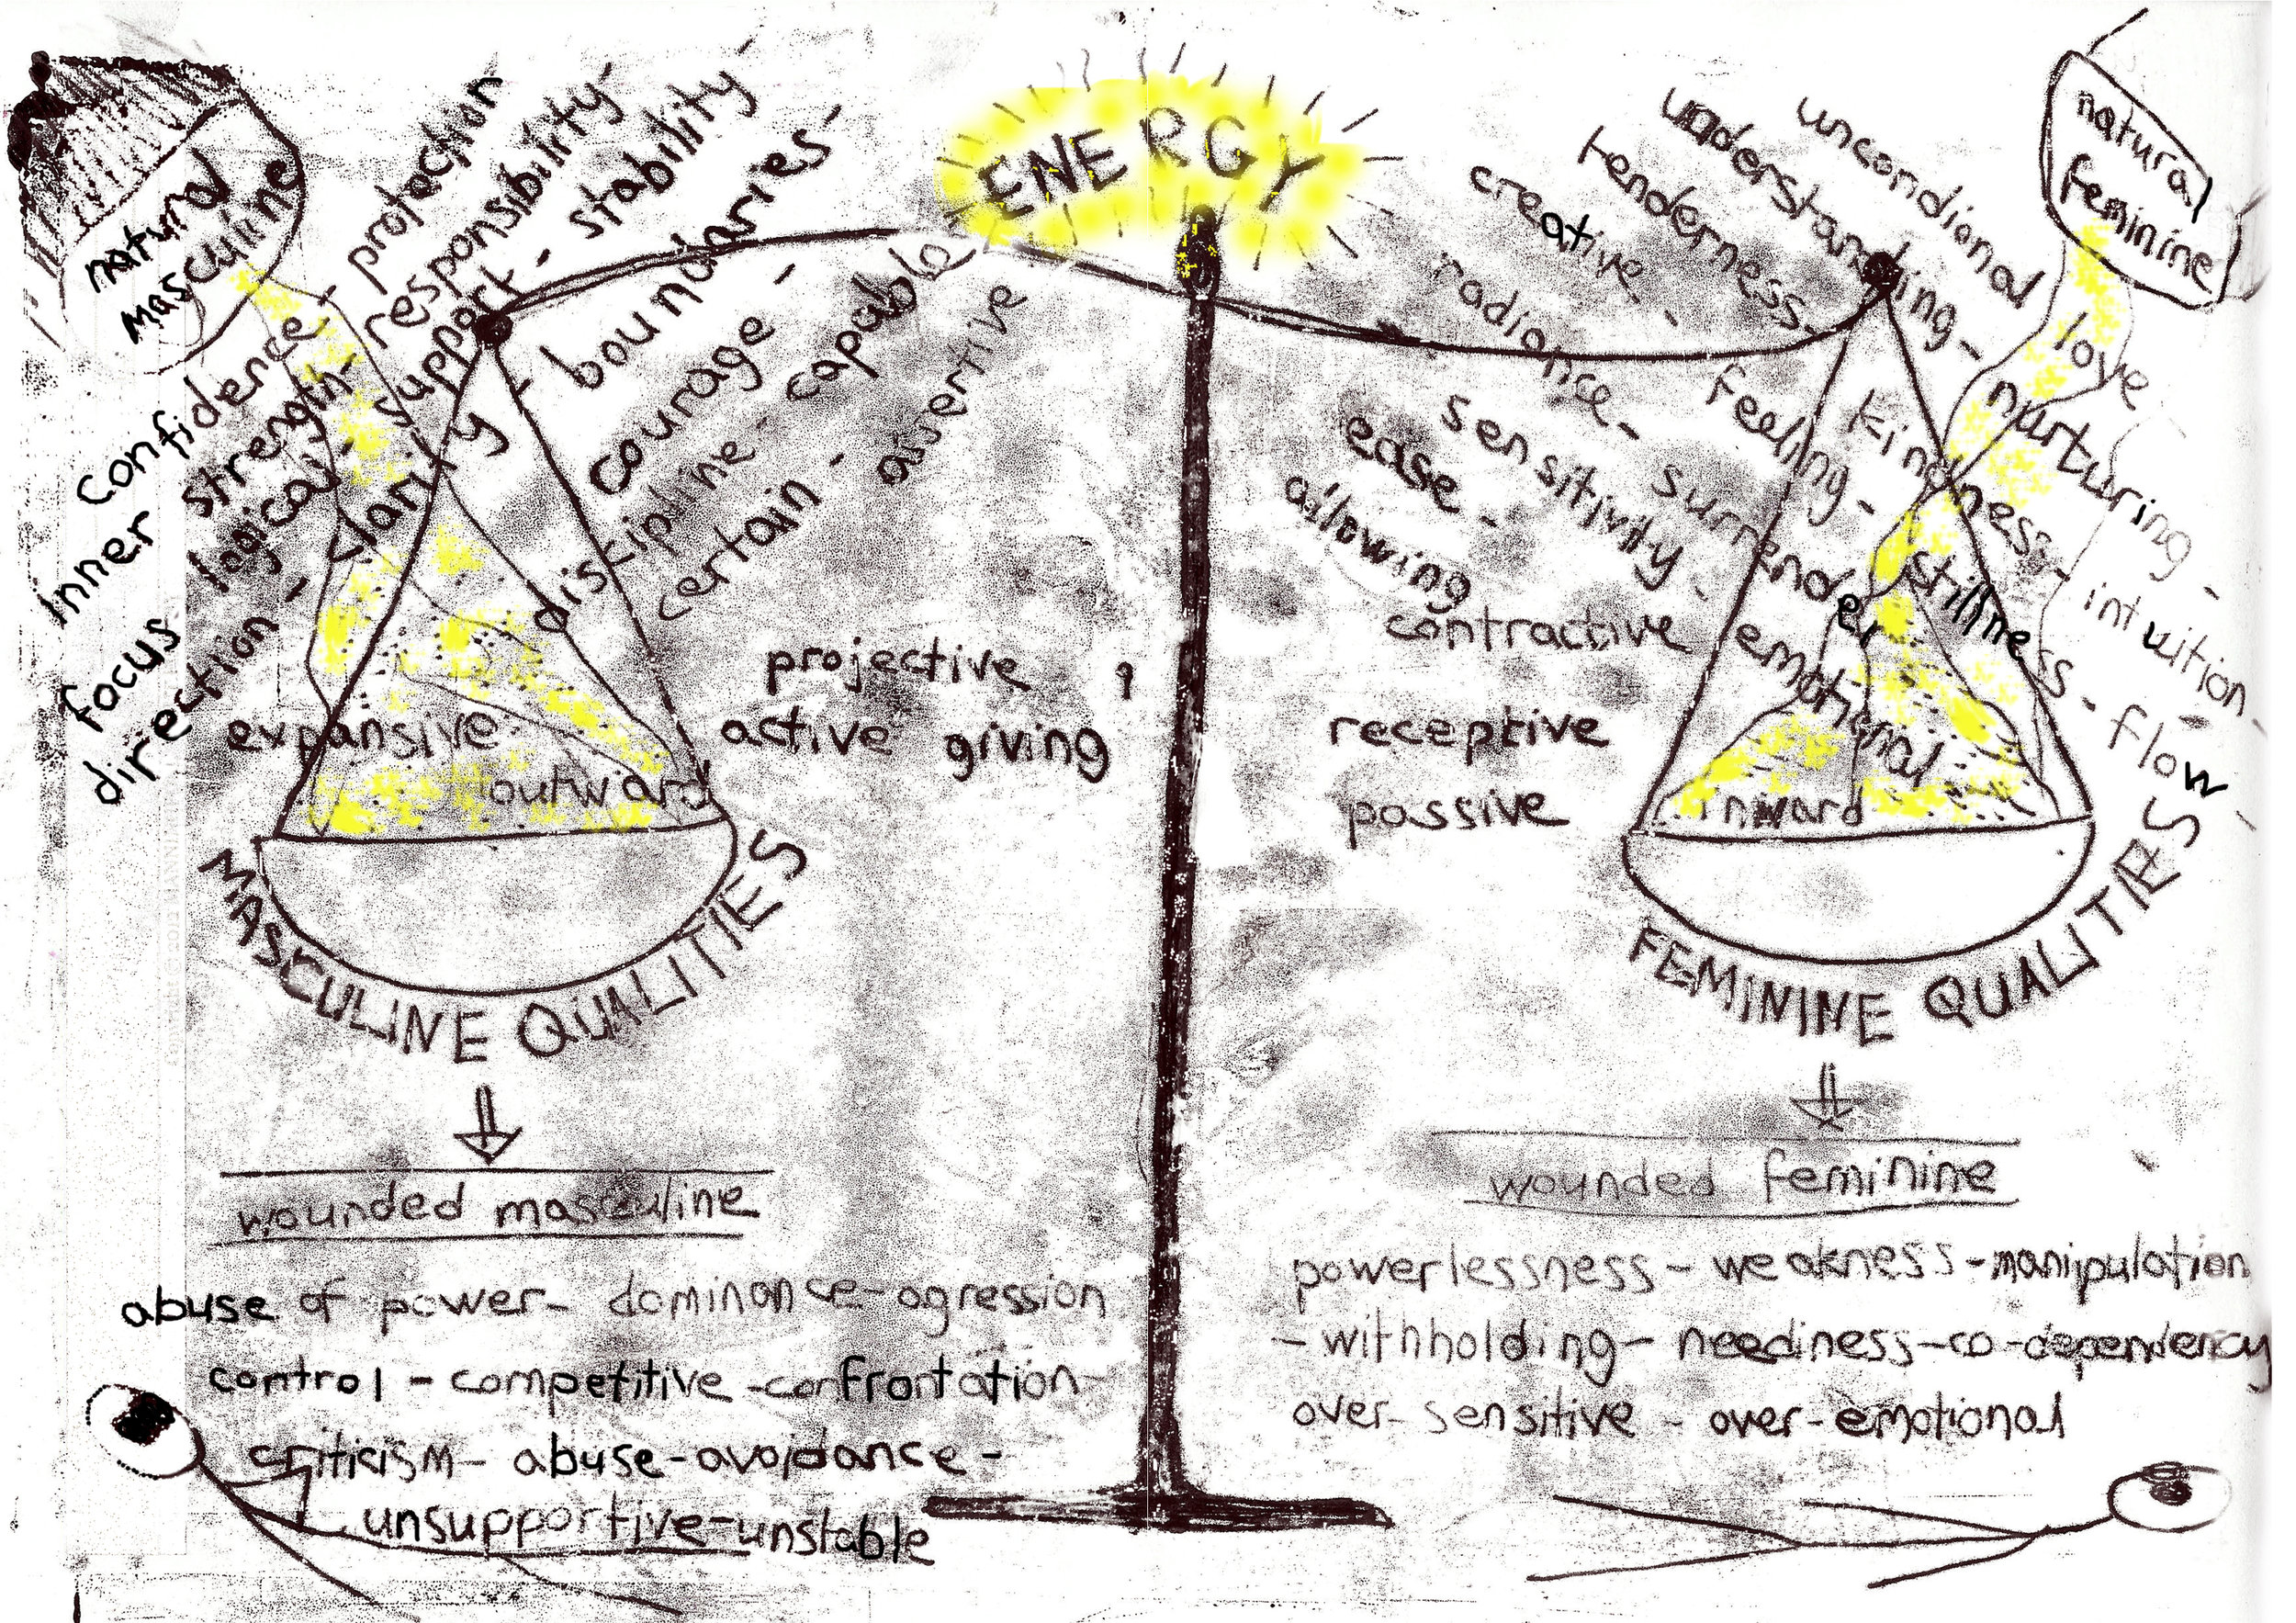 ENERGY
natural
masculine
protection
responsibility -
Inner confidence - strength - support - stability -
focus
logical - clarity - boundaries -
direction - courage -
discipline - capable
certain - assertive
expansive
outward
projective,
active giving
MASCULINE QUALITIES
wounded masculine
abuse of power - dominance - agression
control - competitive - confrontation -
criticism - abuse - avoidance -
unsupportive - unstable
natural
feminine
uncondional love
understanding - nurturing -
tenderness - kindness - intuition -
creative - feeling - stillness - flow -
radiance - surrender
sensitivity - emotional
ease -
allowing
contractive
receptive
passive
inward
FEMININE QUALITIES
wounded feminine
powerlessness - weakness - manipulation
- withholding - neediness - co-dependency
over-sensitive - over-emotional